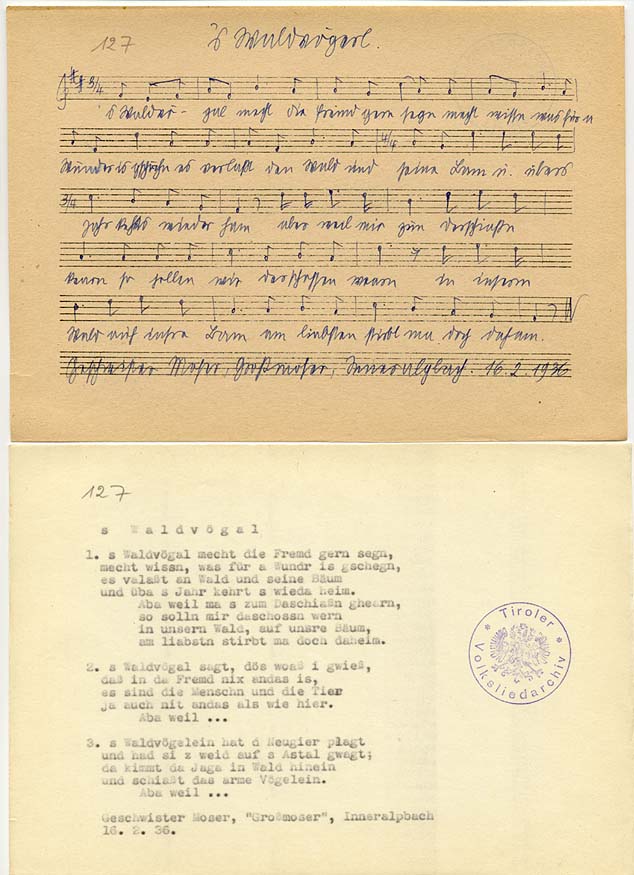 127
's Waldvögerl.
3/4
's Waldvö- gal mecht die Fremd gern segn mecht wissn was für a
4/4
Wunder is gschehn es verlaßt den Wald und seine Bam u. übers
3/4
Jahr kehrts wieder ham aber weil mir zum derschiaßn
kearn so sollen wir derschossen wearn in insern
Wald auf insre Bam am liabsten stirbt ma doch daham.
Geschwister Moser, Großmoser, Inneralpbach. 16.2.1936
127
s Waldvögal
1. s Waldvögal mecht die Fremd gern segn,
mecht wissn, was für a Wundr is gschegn,
es valaßt an Wald und seine Bäum
und üba s Jahr kehrt s wieda heim.
Aba weil ma s zum Daschiaßn ghearn,
so solln mir daschossn wern
in unsern Wald, auf unsre Bäum,
am liabstn stirbt ma doch daheim.
2. s Waldvögal sagt, dös woaß i gwieß,
daß in da Fremd nix andas is,
es sind die Menschn und die Tier
ja auch nit andas als wie hier.
Aba weil ...
3. s Waldvögelein hat d Neugier plagt
und had si z weid auf s Astal gwagt;
da kimmt da Jaga in Wald hinein
und schiaßt das arme Vögelein.
Aba weil ...
Geschwister Moser, "Großmoser", Inneralpbach
16. 2. 36.
* Tiroler *
Volksliedarchiv